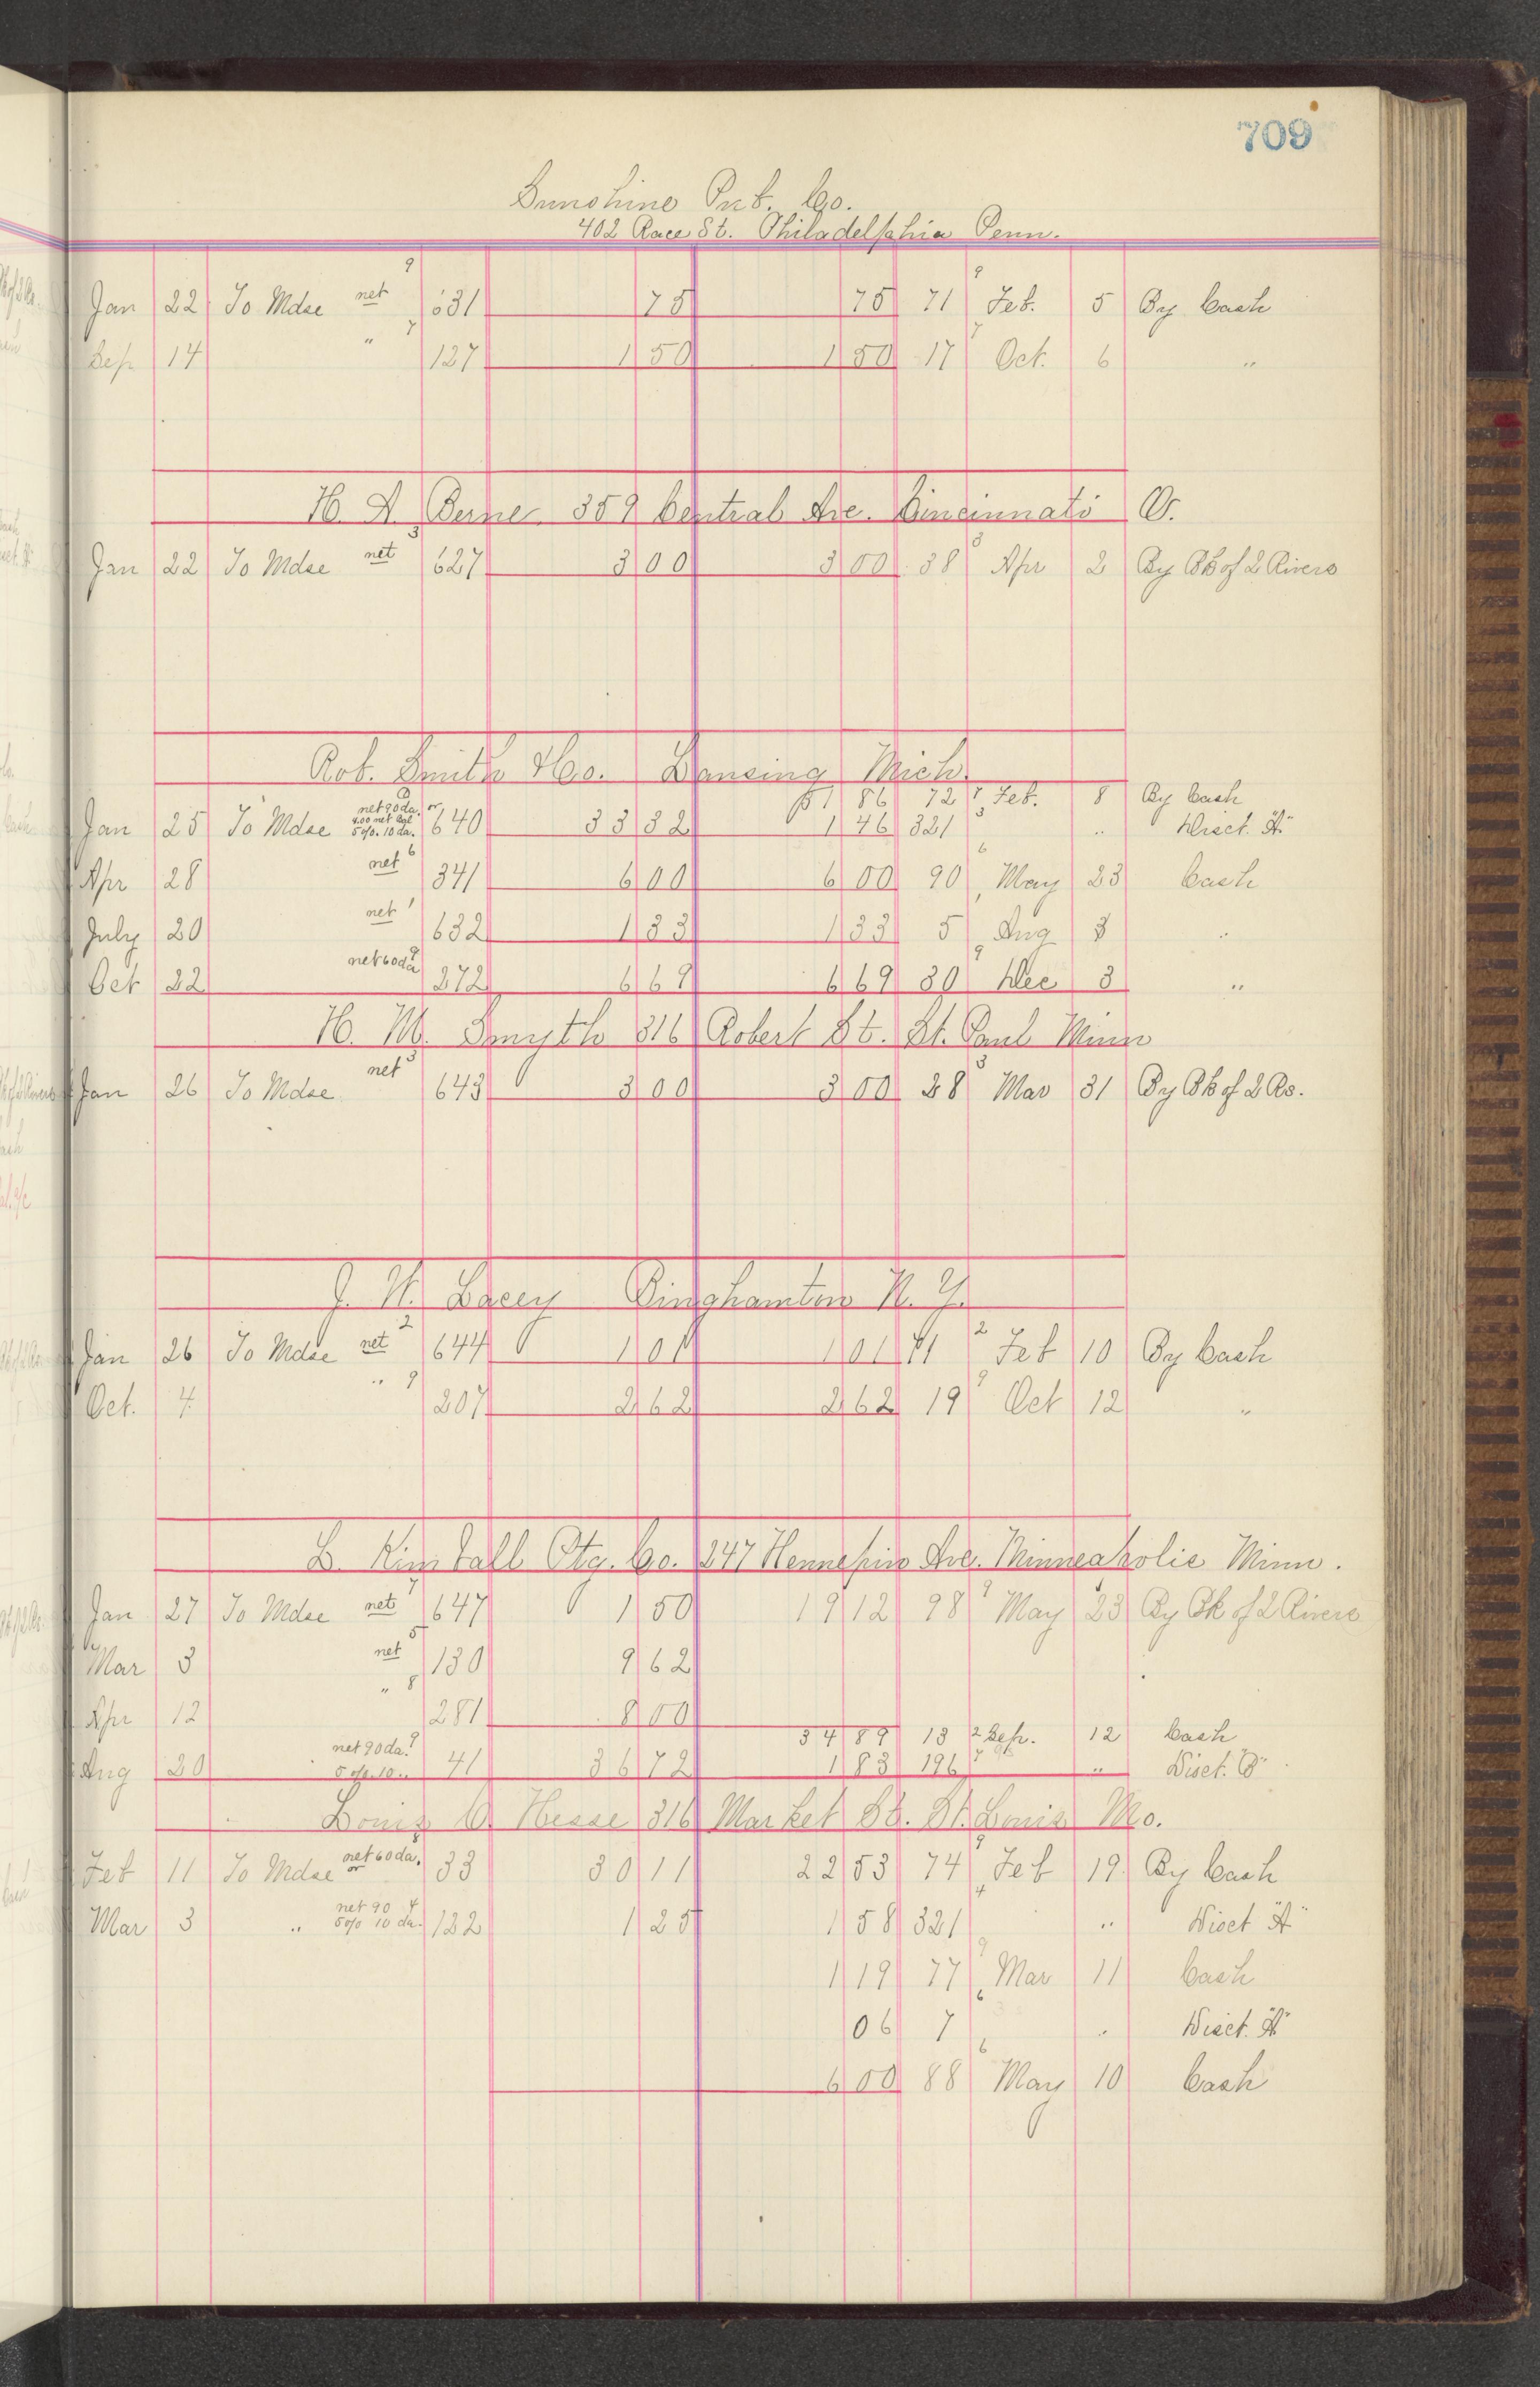 709
Sunshine Pub. Co.
402 Race St. Philadelphia Penn.
9 9
Jan 22 To Mdse net 631 75 75 71 Feb. 5 By Cash
7 7
Sep 14 " 127 1 50 1 50 17 Oct. 6 "
H. A. Berne 359 Central Ave. Cincinnati O.
3 3
Jan 22 To Mdse net 627 3 00 3 00 38 Apr 2 By Bk of 2 Rivers
Rob. Smith & Co. Lansing Mich.
net 90 da. or 31 86 72 Feb. 8 By Cash
Jan 25 To Mdse 5% 10 da. 640 33 32 1 46 321 " Disct. "A"
6 6
Apr 28 net 341 6 00 6 00 90 May 23 Cash
July 20 net 1 632 1 33 1 33 5 Aug 3 "
9 9
Oct 22 net 60 da 272 6 69 6 69 30 Dec 3 "
H. M. Smyth 316 Robert St. St. Paul Minn
3 3
Jan 26 To Mdse. net 643 3 00 3 00 28 Mar 31 By Bk of 2 Rs.
J. W. Lacey Binghamton N. Y.
2 2
Jan 26 To Mdse net 644 1 01 1 01 71 Feb 10 By Cash
" 9 9
Oct. 4 207 2 62 2 62 19 Oct 12 "
L. Kimball Ptg. Co. 247 Hennepin Ave. Minneapolis Minn.
7 9
Jan 27 To Mdse net 647 1 50 19 12 98 May 23 By Bk of 2 Rivers
5
Mar 3 net 130 9 62
" 8
Apr 12 281 8 00
34 89 13 2 Sep. 12 Cash
net 90 da. 9
Aug 20 5% 10 " 41 36 72 1 83 196 7 " Disct. "B"
Louis O. Hesse 316 Market St. St. Louis Mo.
Feb 11 To Mdse net 60 da. or 33 30 11 22 53 74 9 Feb 19 By Cash
net 90 4 4
Mar 3 " 5% 10 da. 122 1 25 1 58 321 " Disct "A"
9
1 19 77 Mar 11 Cash
6
06 7 " Disct. "A"
6
6 00 88 May 10 Cash